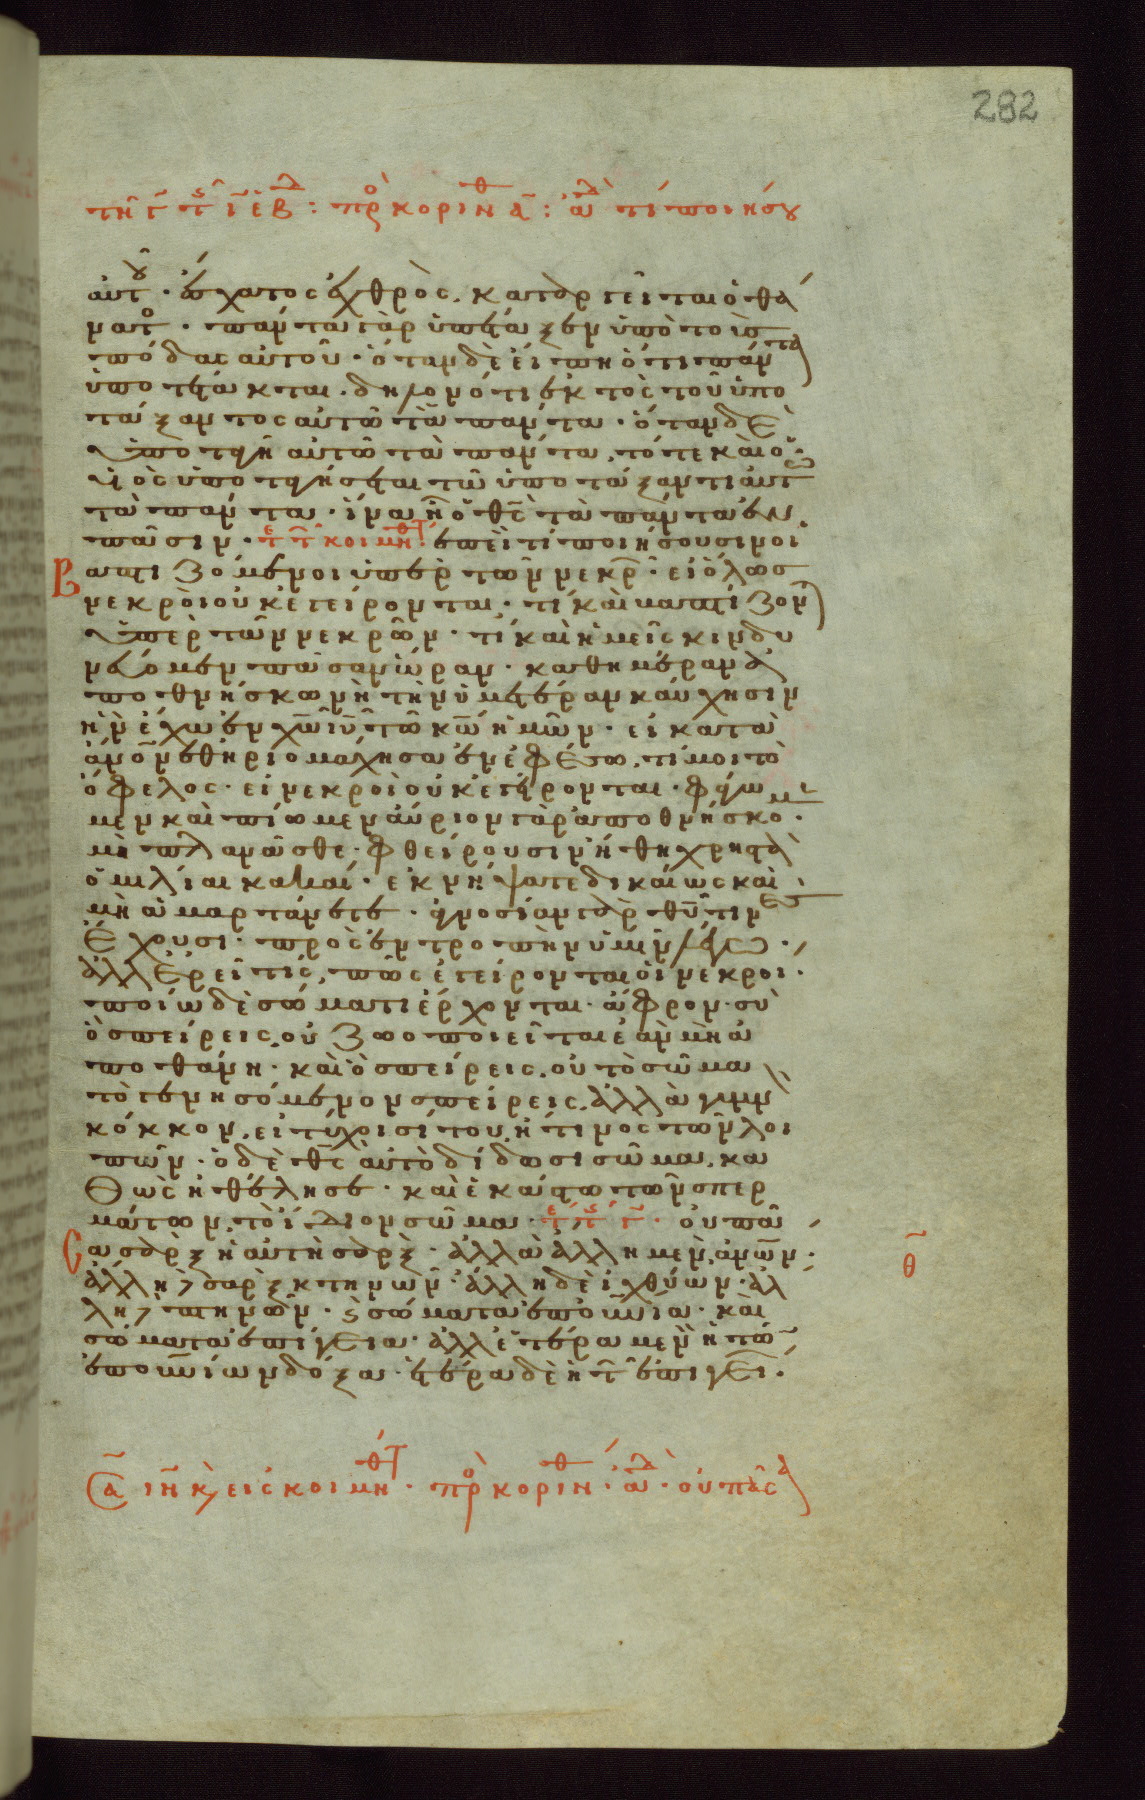 282
τῆ γ τ ι ἑβδ : πρ κοριν α : ἀδ τί ποιήσου
αὐτοῦ · ἔσχατος ἐχθρὸς, καταργεῖται ὁ θά
νατος · πάντα γὰρ ὑπέταξεν ὑπὸ τοὺς
πόδας αὐτοῦ · ὅταν δὲ εἴπη ὅτι πάντα
ὑποτέτακται · δῆλον ὅτι ἐκτὸς τοῦ ὑπο
τάξαντος αὐτῶ τὰ πάντα · ὅταν δὲ
ὑποταγῆ αὐτῶ τὰ πάντα, τότε καὶ ὁ
υἱὸς ὑποταγήσεται τῶ ὑποτάξαντι αὐτῶ
τὰ πάντα · ἵνα ἦ ὁ θς τὰ πάντα ἐν
πᾶσιν · τε τ κοιμη ἐπεὶ τί ποιήσουσιν οἱ
Βαπτιζόμενοι ὑπὲρ τῶν νεκρ · εἰ ὅλως
νεκροὶ οὐκ ἐγείρονται · τί καὶ βαπτίζον
ὑπὲρ τῶν νεκρῶν · τί καὶ ἡμεῖς κινδυ
νεύομεν πᾶσαν ὥραν · καθημέραν ἀ
ποθνήσκω νὴ τὴν ὑμετέραν καύχησιν
ἣν ἔχω ἐν χω ιυ τῶ κω ἡμῶν · εἰ κατὰ
ἄνον ἐθηριομάχησα ἐν ἐφέσω, τί μοι τὸ
ὄφελος · εἰ νεκροὶ οὐκ ἐγείρονται · φάγω
μεν καὶ πίωμεν αὔριον γὰρ ἀποθνήσκομεν ·
μὴ πλανᾶσθε · φθείρουσιν ἤθη χρηστὰ
ὁμιλίαι κακαί · ἐκνήψατε δικαίως καὶ
μὴ ἁμαρτάνετε · ἀγνωσίαν γὰρ θυ τινες
ἔχουσι · πρὸς ἐντροπὴν ὑμῖν λέγω ·
ἀλλ ἐρεῖ τίς, πῶς ἐγείρονται οἱ νεκροι ·
ποίω δὲ σώματι ἔρχονται · ἄφρον · σὺ
ὃ σπείρεις, οὐ ζωοποιεῖται ἐὰν μὴ ἀ
ποθάνη · καὶ ὃ σπείρεις, οὐ τὸ σῶμα
τὸ γενησόμενον σπείρεις, ἀλλὰ γυμνὸν
κόκκον, εἰ τύχοι σίτου, ἤ τινος τῶν λοι
πῶν · ὁ δὲ θς αὐτὸ δίδωσι σῶμα, κα
θὼς ἠθέλησε · καὶ ἑκάστω τῶν σπερ
μάτων, τὸ ἴδιον σῶμα · τε τ γ · οὐ πᾶ
Σα σὰρξ ἡ αὐτὴ σὰρξ · ἀλλὰ ἄλλη μὲν ἀνων · θ
ἄλλη δὲ σὰρξ κτηνῶν · ἄλλη δὲ ἰχθύων · ἄλ
λη δὲ πτηνῶν · καὶ σώματα ἐπουνια · καὶ
σώματα ἐπίγεια · ἀλλ ἑτέρα μὲν ἡ τῶν
ἐπουνίων δόξα · ἑτέρα δὲ ἡ τ ἐπιγεί ·
Σα ιη κ, εἰς κοιμηθ · πρ κοριν · ἀδ · οὐ πᾶσα